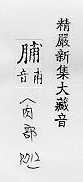 精嚴新集大藏音
脯甫音
(肉部
P.012